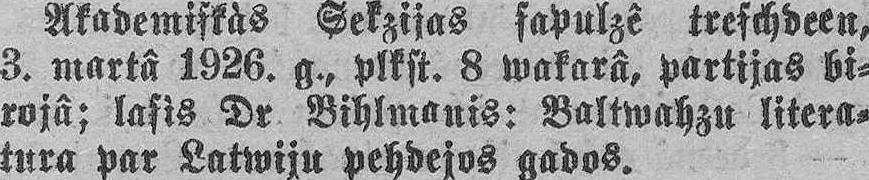 Akademiſkàs Sekzijas ſapulzê treſchdeen,
3. martâ 1926. g., plkſt. 8 wakarâ, partijas bi-
rojâ; laſìs Dr Bihlmanis: Baltwahzu litera-
tura par Latwiju pehdejos gados.